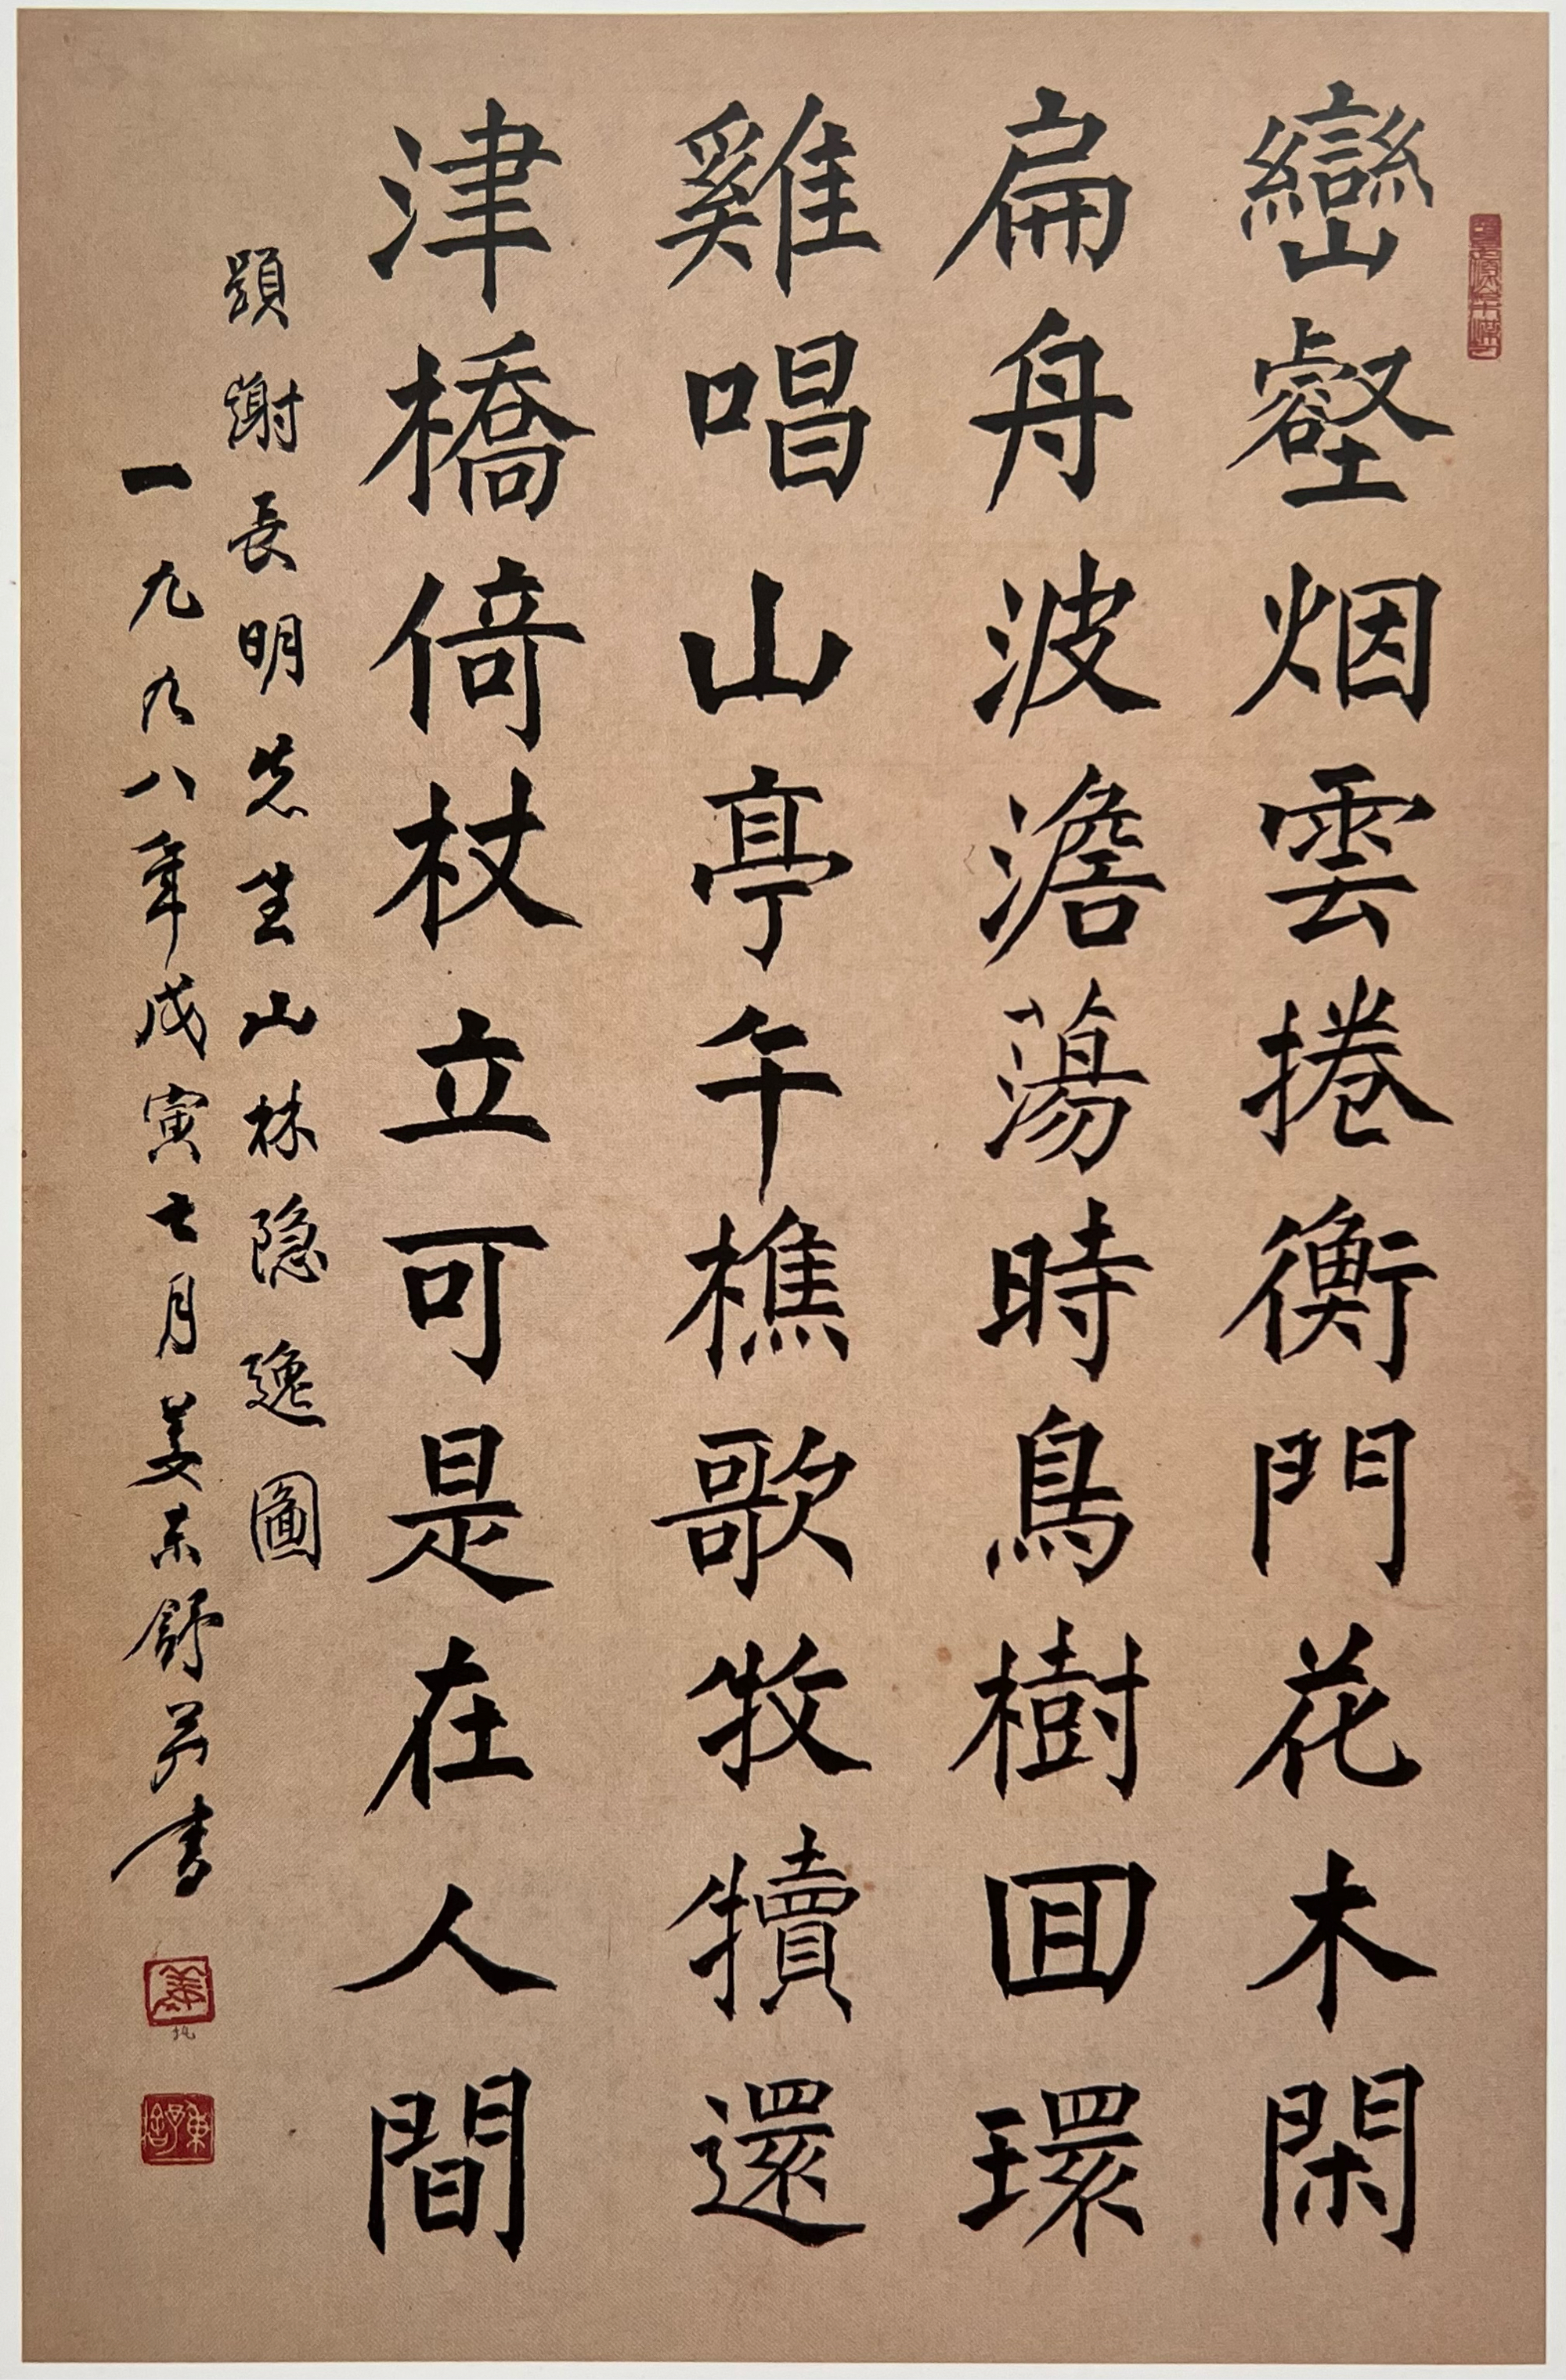 巒壑烟雲捲衡門花木閑
扁舟波澹蕩時鳥樹囬環
雞唱山亭午樵歌牧犢還
津橋倚杖立可是在人間
題謝長明先生山林隐逸圖
一九九八年戊寅七月姜東舒并書
姜
東舒